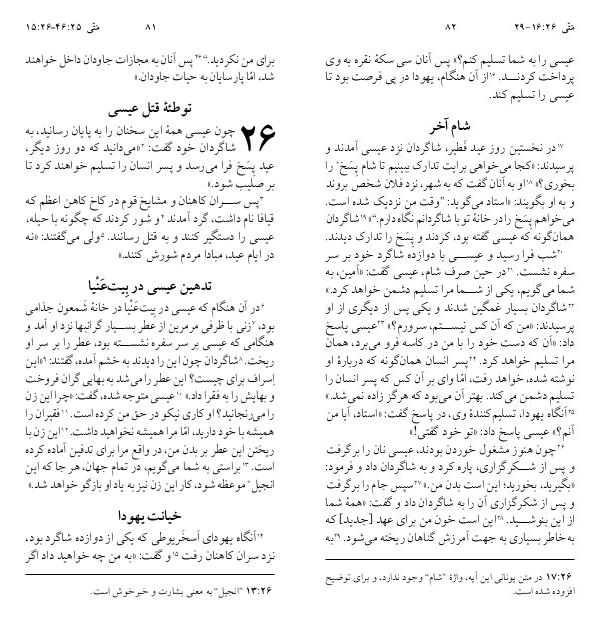 مَتّی ۴۶:۲۵-۱۵:۲۶ ۸۱
برای من نکردید.“ ۴۶پس آنان به مجازات جاودان داخل خواهند
شد، امّا پارسایان به حیات جاودان.»
توطئهٔ قتل عیسی
۲۶ چون عیسی همهٔ این سخنان را به پایان رسانید، به
شاگردان خود گفت: ۲«می‌دانید که دو روز دیگر،
عید پِسَخ فرا می‌رسد و پسر انسان را تسلیم خواهند کرد تا
بر صلیب شود.»
۳پس ســران کاهنان و مشایخ قوم در کاخ کاهن اعظم که
قیافا نام داشت، گرد آمدند ۴و شور کردند که چگونه با حیله،
عیسی را دستگیر کنند و به قتل رسانند. ۵ولی می‌گفتند: «نه
در ایام عید، مبادا مردم شورش کنند.»
تدهین عیسی در بِیت‌عَنْیا
۶در آن هنگام که عیسی در بِیت‌عَنْیا در خانهٔ شَمعون جذامی
بود، ۷زنی با ظرفی مرمرین از عطر بســیار گرانبها نزد او آمد و
هنگامی که عیسی بر سر سفره نشســته بود، عطر را بر سر او
ریخت. ۸شاگردان چون این را دیدند به خشم آمده، گفتند: ۹«این
اِسراف برای چیست؟ این عطر را می‌شد به بهایی گران فروخت
و بهایش را به فقرا داد.» ۱۰عیسی متوجه شده، گفت: «چرا این زن
را می‌رنجانید؟ او کاری نیکو در حق من کرده است. ۱۱فقیران را
همیشه با خود دارید، امّا مرا همیشه نخواهید داشت. ۱۲این زن با
ریختن این عطر بر بدن من، در واقع مرا برای تدفین آماده کرده
است. ۱۳براستی به شما می‌گویم، در تمام جهان، هر جا که این
انجیل* موعظه شود، کار این زن نیز به یاد او بازگو خواهد شد.»
خیانت یهودا
۱۴آنگاه یهودای اَسخَریوطی که یکی از دوازده شاگرد بود،
نزد سران کاهنان رفت ۱۵و گفت: «به من چه خواهید داد اگر
۱۳:۲۶ ”انجیل“ به معنی بشارت و خبرخوش است.
مَتّی ۱۶:۲۶-۲۹ ۸۲
عیسی را به شما تسلیم کنم؟» پس آنان سی سکهٔ نقره به وی
پرداخت کردنــد. ۱۶از آن هنگام، یهودا در پی فرصت بود تا
عیسی را تسلیم کند.
شام آخر
۱۷در نخستین روز عید فَطیر، شاگردان نزد عیسی آمدند و
پرسیدند: «کجا می‌خواهی برایت تدارک ببینیم تا شام پِسَخ* را
بخوری؟» ۱۸او به آنان گفت که به شهر، نزد فلان شخص بروند
و به او بگویند: «استاد می‌گوید: ”وقت من نزدیک شده است.
می‌خواهم پِسَخ را در خانهٔ تو با شاگردانم نگاه دارم.“» ۱۹شاگردان
همان‌گونه که عیسی گفته بود، کردند و پِسَخ را تدارک دیدند.
۲۰شب فرا رسید و عیســی با دوازده شاگرد خود بر سر
سفره نشست. ۲۱در حین صرف شام، عیسی گفت: «آمین، به
شما می‌گویم، یکی از شــما مرا تسلیم دشمن خواهد کرد.»
۲۲شاگردان بسیار غمگین شدند و یکی پس از دیگری از او
پرسیدند: «من که آن کس نیســتم، سرورم؟» ۲۳عیسی پاسخ
داد: «آن که دست خود را با من در کاسه فرو می‌برد، همان
مرا تسلیم خواهد کرد. ۲۴پسر انسان همان‌گونه که دربارهٔ او
نوشته شده، خواهد رفت، امّا وای بر آن کس که پسر انسان را
تسلیم دشمن می‌کند. بهتر آن می‌بود که هرگز زاده نمی‌شد.»
۲۵آنگاه یهودا، تسلیم‌کنندهٔ وی، در پاسخ گفت: «استاد، آیا من
آنم؟» عیسی پاسخ داد: «تو خود گفتی!»
۲۶چون هنوز مشغول خوردن بودند، عیسی نان را برگرفت
و پس از شــکرگزاری، پاره کرد و به شاگردان داد و فرمود:
«بگیرید، بخورید؛ این است بدن من.» ۲۷سپس جام را برگرفت
و پس از شکرگزاری آن را به شاگردان داد و گفت: «همهٔ شما
از این بنوشــید. ۲۸این است خون من برای عهد [جدید] که
به‌خاطر بسیاری به جهت آمرزش گناهان ریخته می‌شود. ۲۹به
۱۷:۲۶ در متن یونانی این آیه، واژهٔ ”شام“ وجود ندارد، و برای توضیح
افزوده شده است.